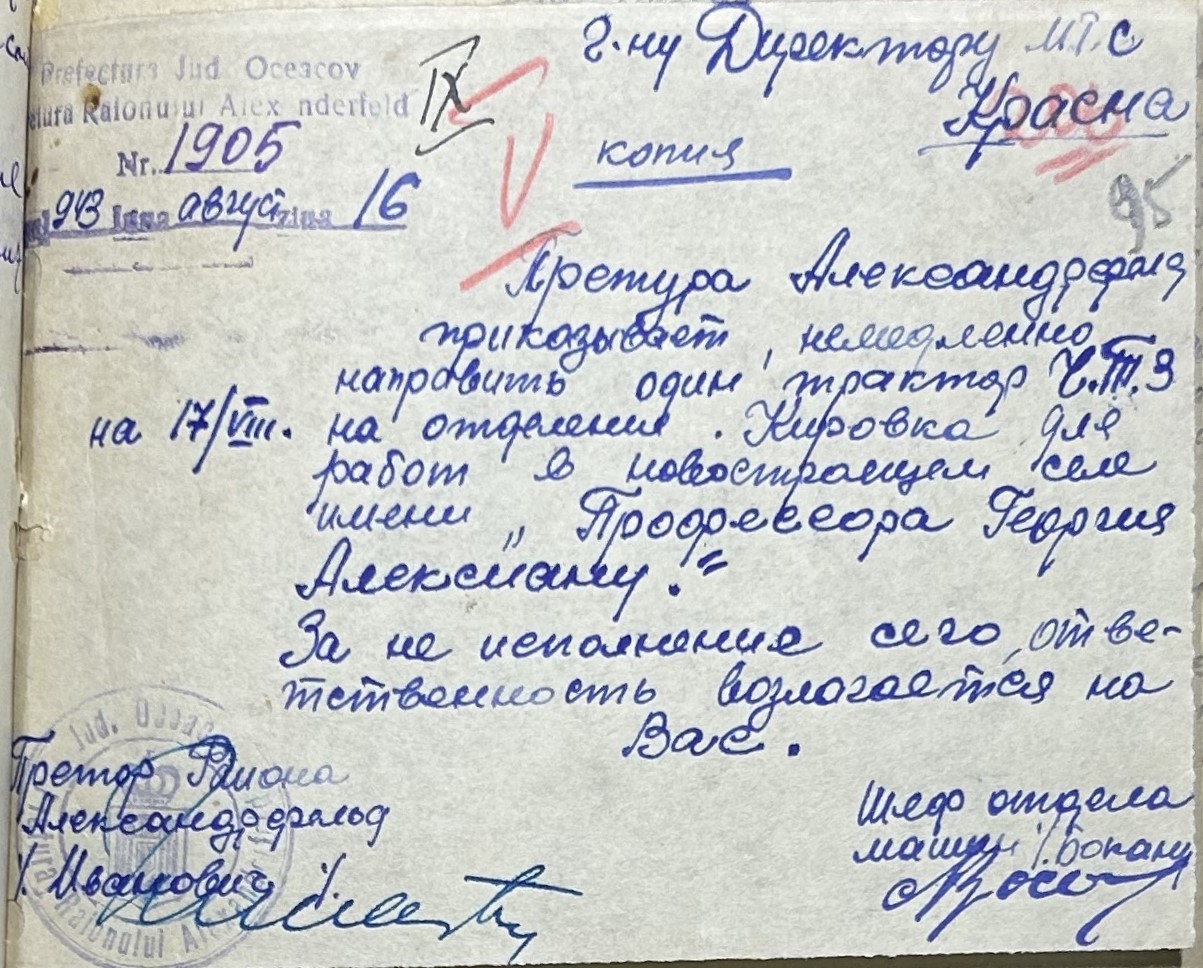 Prefectura Jud. Oceacov
Raionului Alex nderfeld
Nr. 1905
943 Luna август ziua 16
IX
V
г-ну Директору М.Т.С
Красна
копия
95
Претура Александрфельд
приказывает, немедленно
направить один трактор Ч.Т.З
на 17/VIII. на отделения. Кировка для
работ в новостроящем селе
имени „Профессора Георгия
Алексиану."
За не исполнение сего, отве-
тственность возлагается на
Вас.
Претор Района
Александрфельд
/. Иванович /.
Шеф отдела
машин
Jud. Oceaco
Raionului Alex